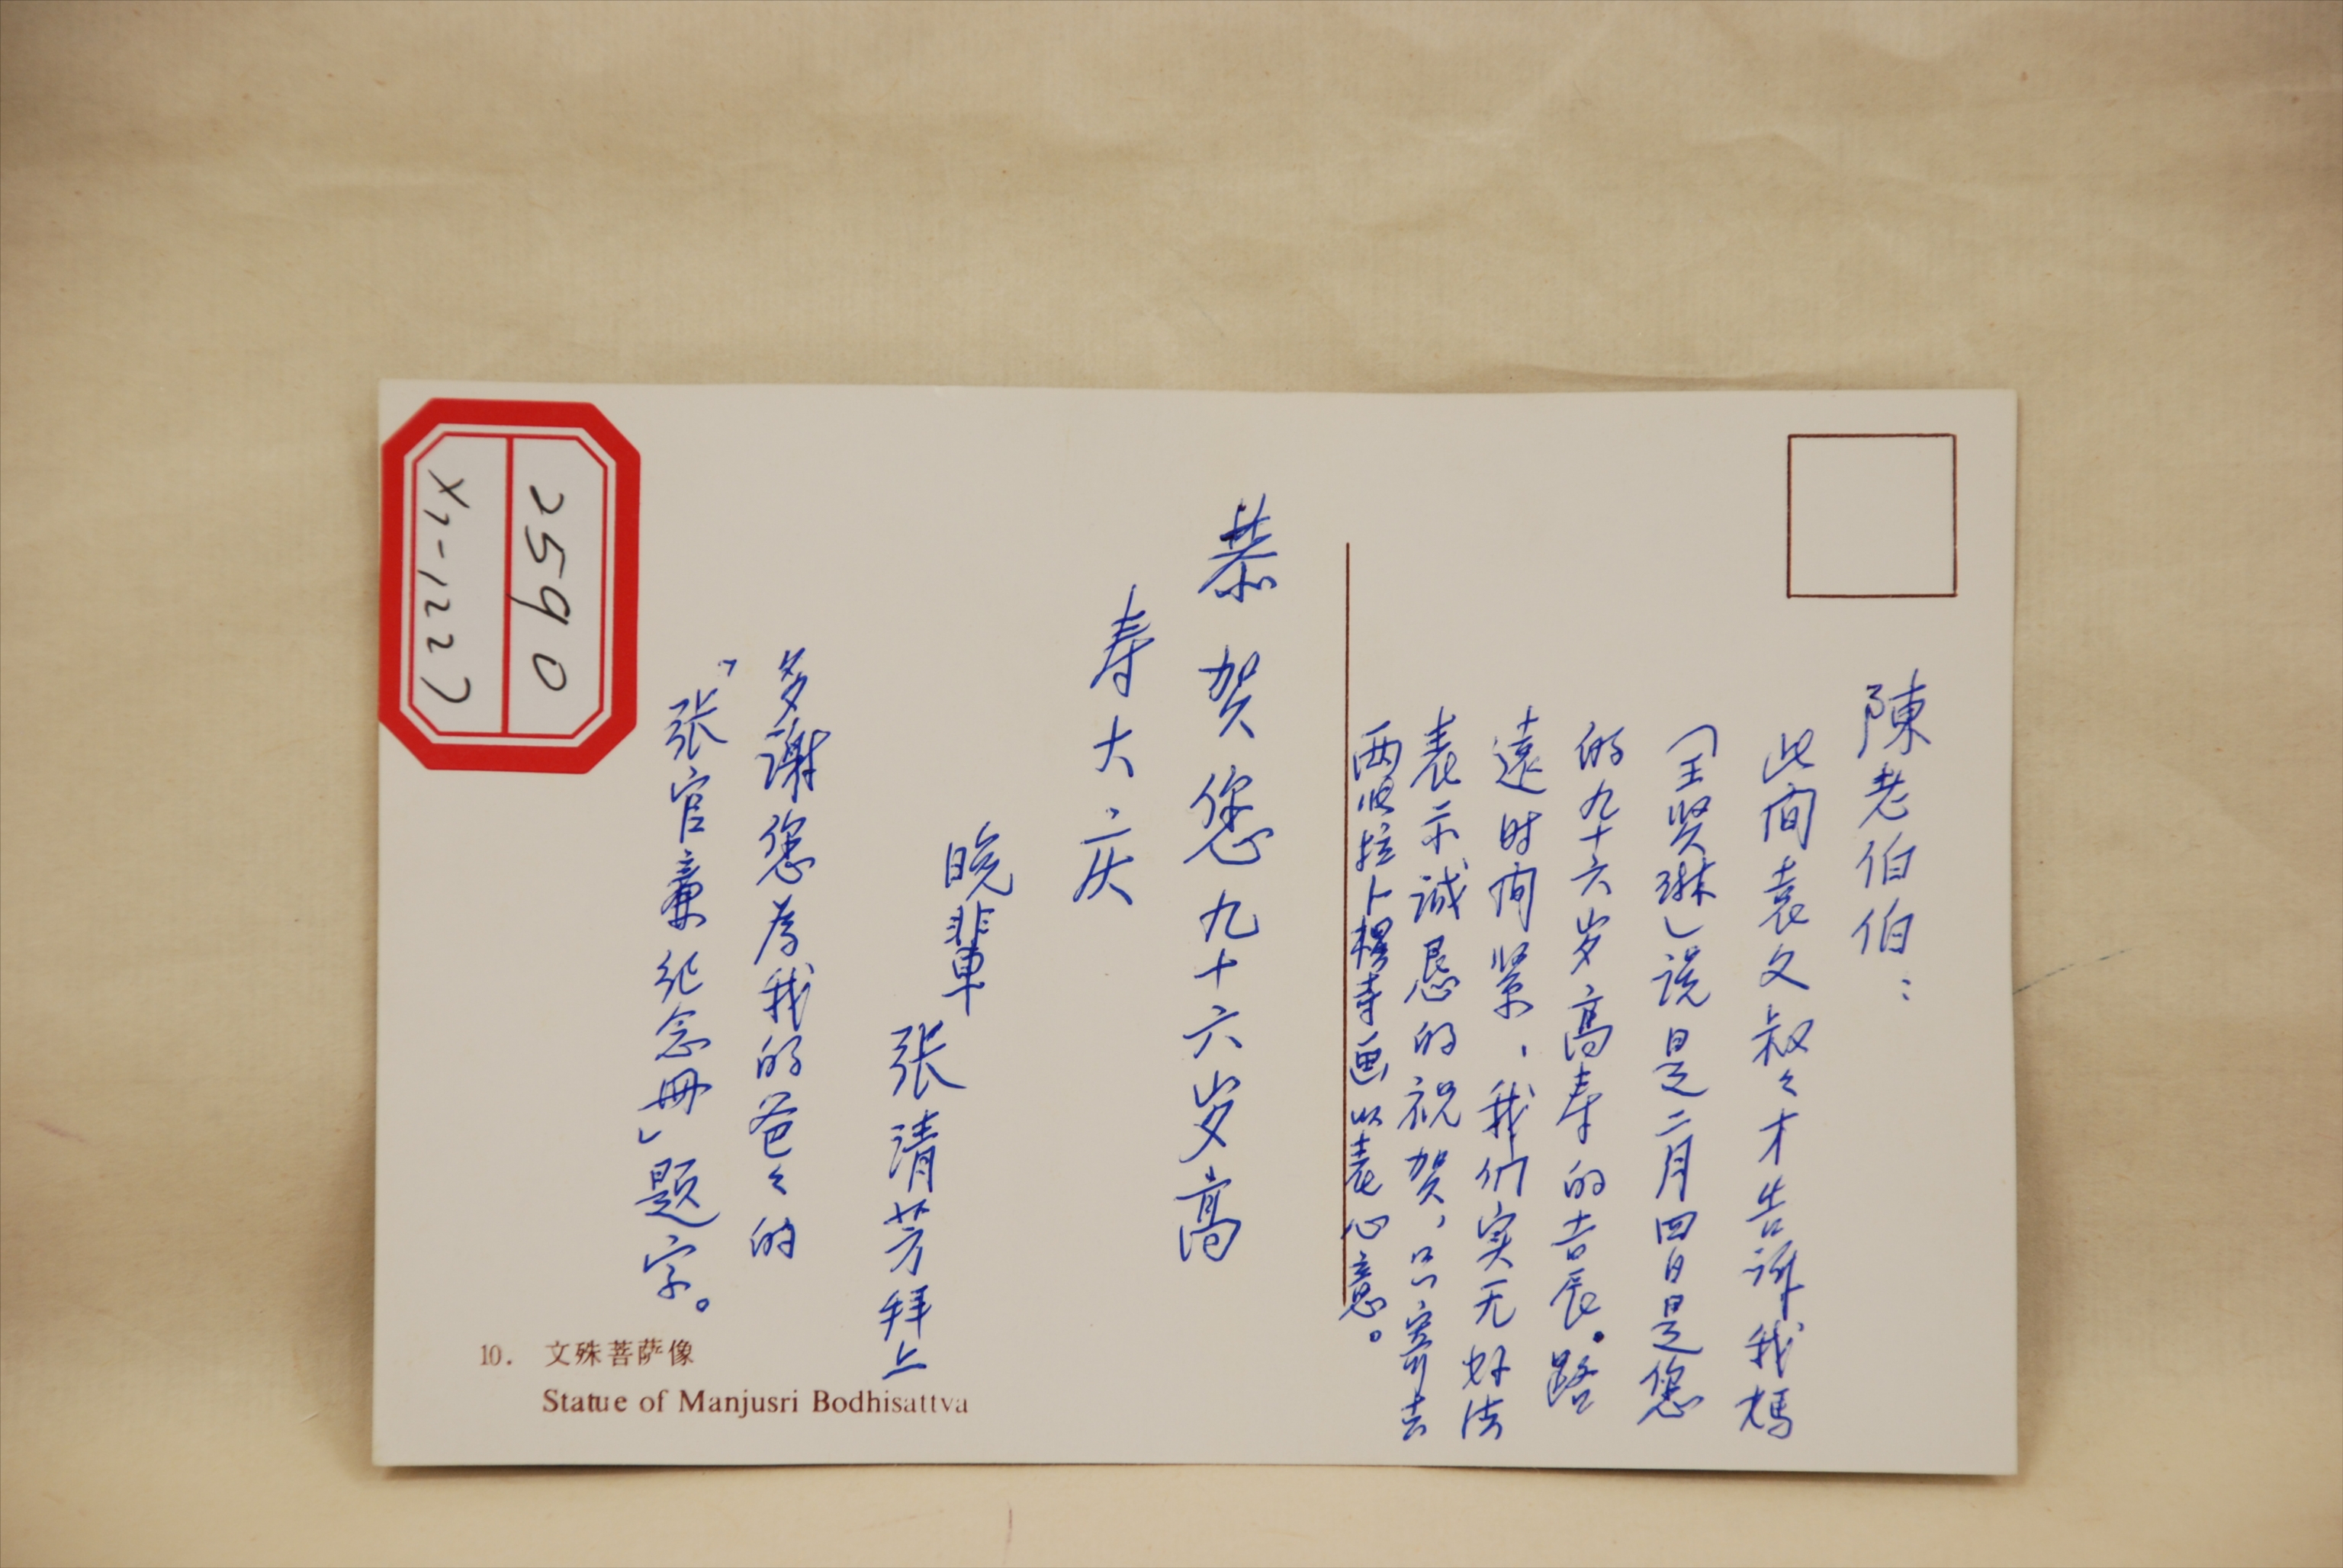 陳老伯伯：
此间袁文叔々才告诉我媽
(王贤琳)说是二月四日是您
的九十六岁高寿的吉辰。路
遠时间紧，我们实无好法
表示诚恳的祝贺，只寄去
两张拉卜楞寺画以表心意。
恭贺您九十六岁高
寿大庆
晚輩
张清芳拜上
多谢您为我的爸々的
「张官廉纪念册」题字。
10. 文殊菩萨像
Statue of Manjusri Bodhisattva
2590
X1-1227